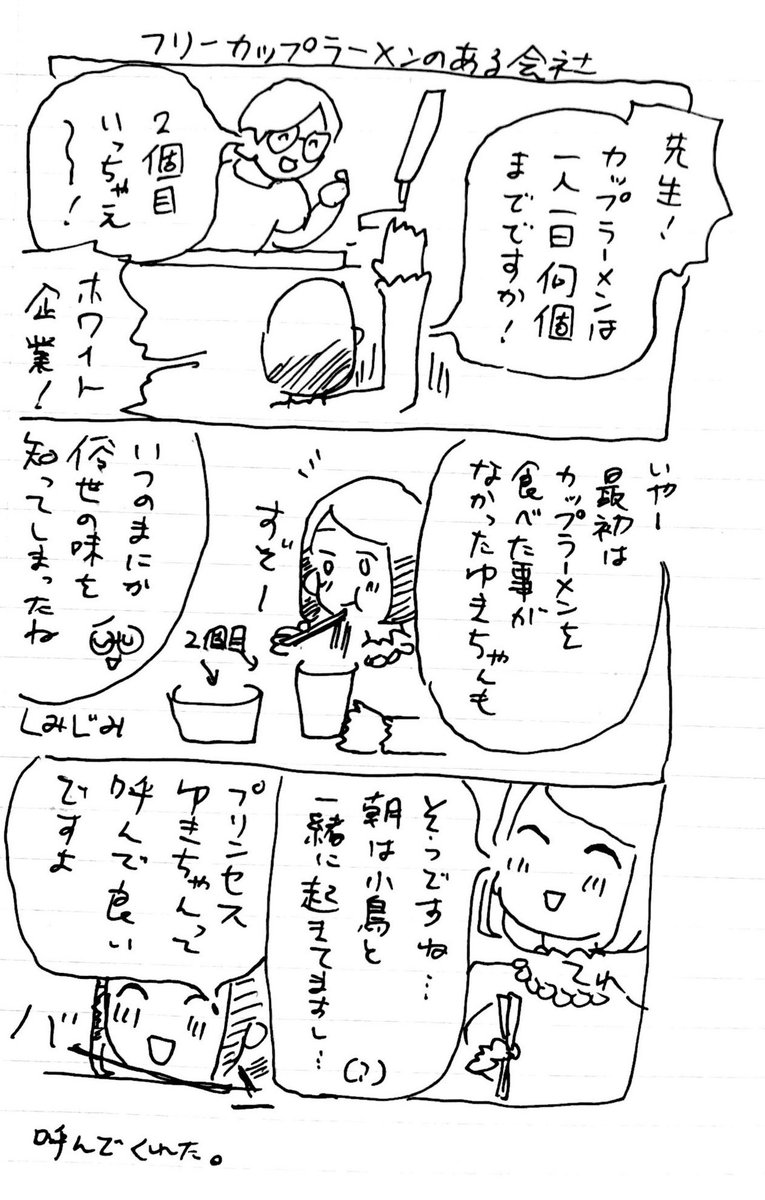 フリーカップラーメンのある会社
先生！
カップラーメンは
一人一日何個
までですか！
2個目
いっちゃえ
〜〜！
ホワイト
企業！
いやー
最初は
カップラーメンを
食べた事が
なかったゆきちゃんも
ずぞー
2個目
いつのまにか
俗世の味を
知ってしまったね
しみじみ
そうですね…
朝は小鳥と
一緒に起きてますし…
(?)
てれ〜
プリンセス
ゆきちゃんって
呼んで良い
ですよ
バ
呼んでくれた。